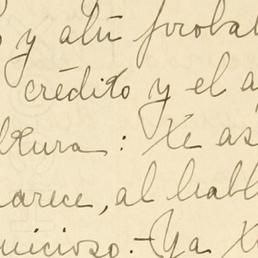 y aún probab
crédito y el a
ltura: Xe as
arece, al habl
uicioso.- Ya X